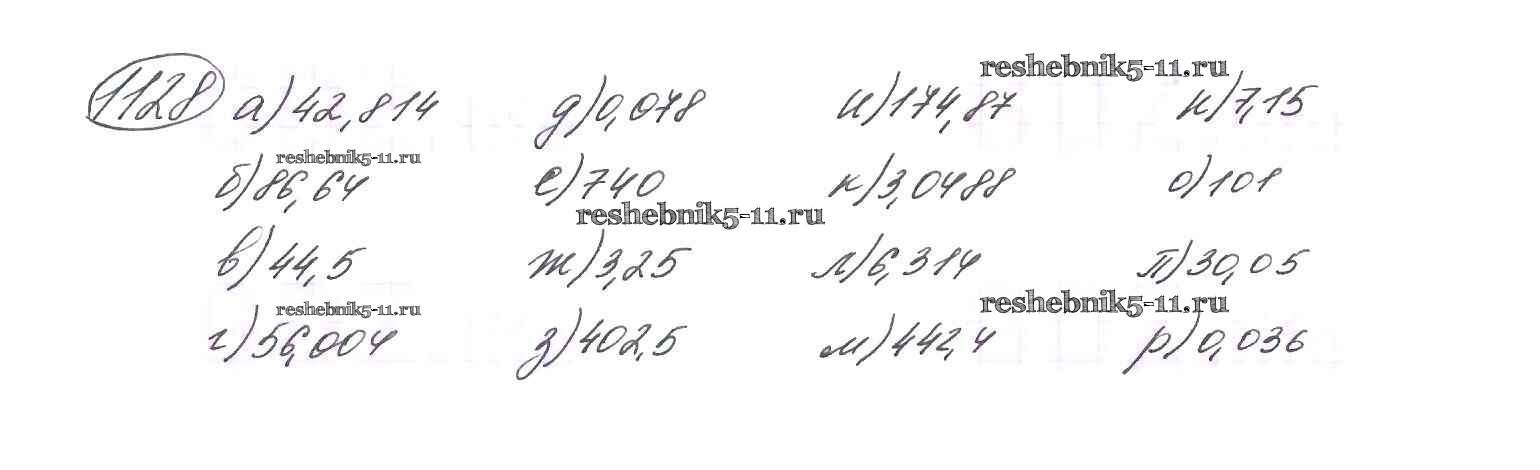 1128 а) 42,814 д) 0,078 и) 174,87 н) 7,15
reshebnik5-11.ru
reshebnik5-11.ru
б) 86,64 е) 740 к) 3,0488 о) 101
reshebnik5-11.ru
в) 44,5 ж) 3,25 л) 6,314 п) 30,05
reshebnik5-11.ru reshebnik5-11.ru
г) 56,004 з) 402,5 м) 442,4 р) 0,036